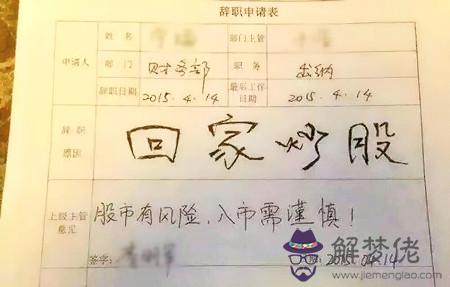 辞职申请表
姓名 部门主管
申请人 部门 财务部 职务 出纳
辞职日期 2015.4.14 最后工作日期 2015.4.14
辞职原因 回家炒股
上级主管意见 股市有风险,入市需谨慎!
签字: 2015.04.14
解梦佬
www.jiemenglao.com